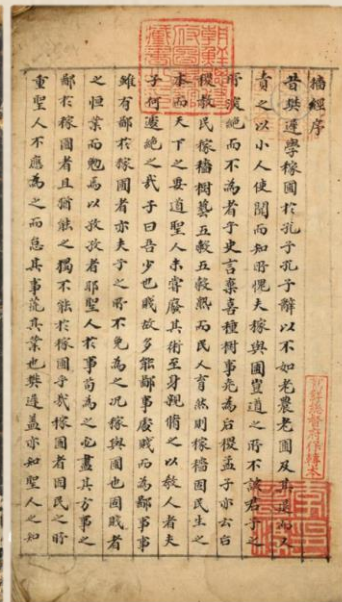 穡經序
昔樊遲學稼圃於孔子孔子辭以不如老農老圃及其退而又
責之以小人使聞而知所懼夫稼與圃豈道之所不該君子之
所深絶而不爲者乎史言棄喜種樹事堯爲后稷孟子亦云后
稷敎民稼穡樹藝五穀五穀熟而民人育然則稼穡固民生之
本而天下之要道聖人未嘗廢其術至身親脩之以敎人者夫
子何遽絶之哉子曰吾少也賤故多能鄙事廢賤而爲鄙事事
雖有鄙於稼圃者亦夫子之所不免爲之况稼與圃也固賤者
之恒業而勉爲以孜孜者耶聖人於事苟爲之必盡其方事之
鄙於稼圃者且猶能之獨不能於稼圃乎哉稼圃者固民之所
重聖人不應爲之而怠其事蔑其業也樊遲盖亦知聖人之知
朝鮮總督府